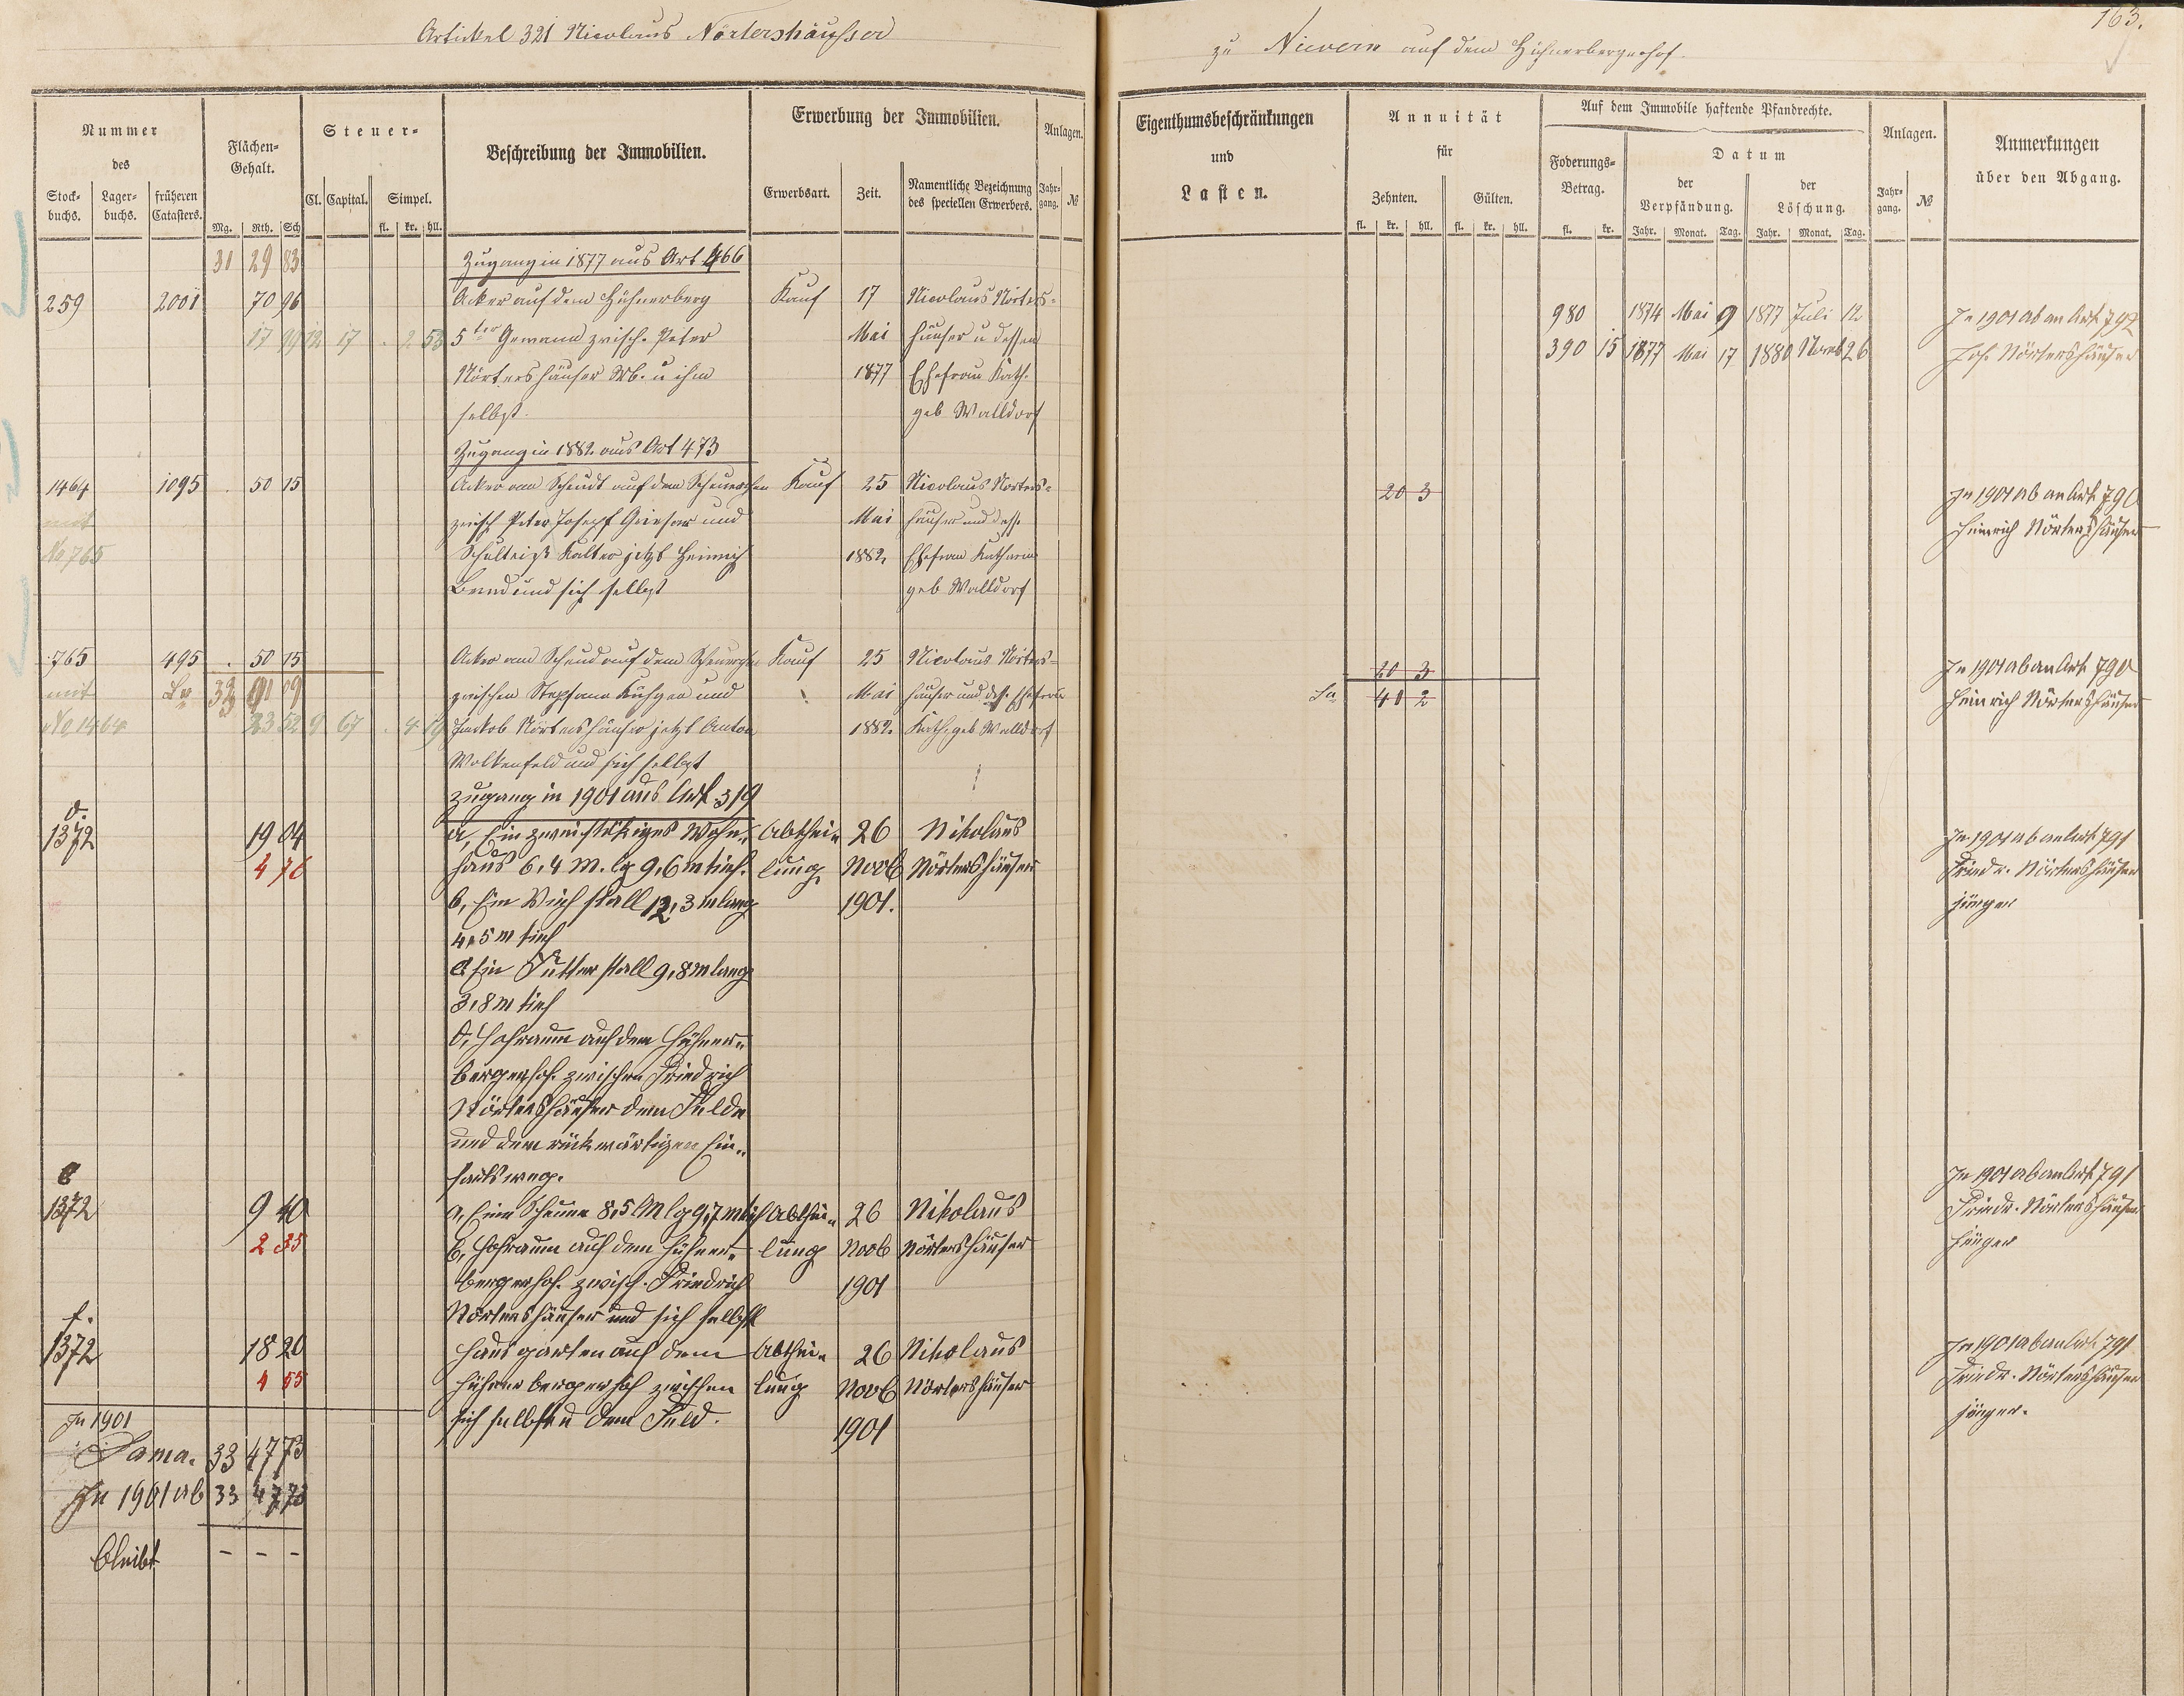 Artickel 321 Nicolaus Nörtershäusser
zu Nievern auf dem Hühnerbergerhof.
163.
Nummer
des
Stock-
buchs.
Lager-
buchs.
früheren
Catasters.
Flächen-
Gehalt.
Mg. Rth. Sch
Steuer-
Cl. Capital. Simpel.
fl. kr. hll.
Beschreibung der Immobilien.
Erwerbung der Immobilien.
Erwerbsart. Zeit.
Namentliche Bezeichnung
des speciellen Erwerbers.
Anlagen.
Jahr-
gang. №
Eigenthumsbeschränkungen
und
Lasten.
Annuität
für
Zehnten. Gülten.
fl. kr. hll. fl. kr. hll.
Auf dem Immobile haftende Pfandrechte.
Foderungs-
Betrag.
fl. kr.
Datum
der
Verpfändung.
der
Löschung.
Jahr. Monat. Tag. Jahr. Monat. Tag.
Anlagen.
Jahr-
gang. №
Anmerkungen
über den Abgang.
31 29 83 Zugang in 1877 aus Art 466
259 2001 70 96 Acker auf dem Hühnerberg Kauf 17 Nicolaus Nörters- 980 1874 Mai 9 1877 Juli 12 In 1901 ab an Art. 792
17 99 12 17 . 2 53 5ter Gewann zwisch. Peter Mai häuser u dessen 390 15 1877 Mai 17 1880 Novb 26 Joh. Nörtershäuser
Nörtershäuser Wb. u ihm 1877 Ehefrau Kath.
selbst. geb Walldorf
Zugang in 1882 aus Art 473
1464 1095 . 50 15 Acker am Scheudt auf dem Kauf 25 Nicolaus Nörters- 20 3 In 1901 ab an Art. 790
mit zwisch Peter Josepf und Mai häuser und dess. Heinrich Nörtershäuser
No 765 Schulteiß Kalter jetzt Heinrich 1882. Ehefrau Katharina
und sich selbst geb Walldorf
765 495 . 50 15 Acker am Scheud auf dem Kauf 25 Nicolaus Nörters- 20 3 In 1901 ab an Art. 790
mit 32 91 09 zwischen Stephann und Mai häuser und dess. Ehefrau Sa 40 2 Heinrich Nörtershäuser
No 1464 23 52 9 67 . 4 19 Jackob Nörtershäuser jetzt Anton 1882. Kath. geb Walldorf
Wolkenfeld und sich selbst
Zugang in 1901 aus Art. 319
d.
1372 19 04 a, Ein zweistökiges Wohn- Abthei- 26 Nikolaus In 1901 ab an Art. 791
4 76 haus 6,4 m. lg 9,6 m tief. lung Novb Nörtershäuser Friedr. Nörtershäuser
b, Ein Viehstall 12,3 m lang 1901. jünger
4,5 m tief
c, Ein Futterstall 9,8 m lang
3,8 m tief
d, Hofraum auf dem Hühner-
bergerhof. zwischen Friedrich
Nörtershäuser dem Felde
und dem rückwärtigen Ein-
fartsweg.
e
1372 9 40 a, Eine Scheune 8,5 M lg 9,7 m tief Abthei- 26 Nikolaus In 1901 ab an Art. 791
2 35 b, Hofraum auf dem Hühner- lung Novb Nörtershäuser Friedr. Nörtershäuser
bergerhof. zwisch. Friedrich 1901 jünger
Nörtershäuser und sich selbst
f.
1372 18 20 Hausgarten auf dem Abthei- 26 Nikolaus In 1901 ab an Art. 791
4 55 Hühnerbergerhof zwischen lung Novb Nörtershäuser Friedr. Nörtershäuser
In 1901 sich selbst u dem Feld. 1901 jünger.
Soma. 33 47 73
In 1901 ab 33 47 73
bleibt – – –